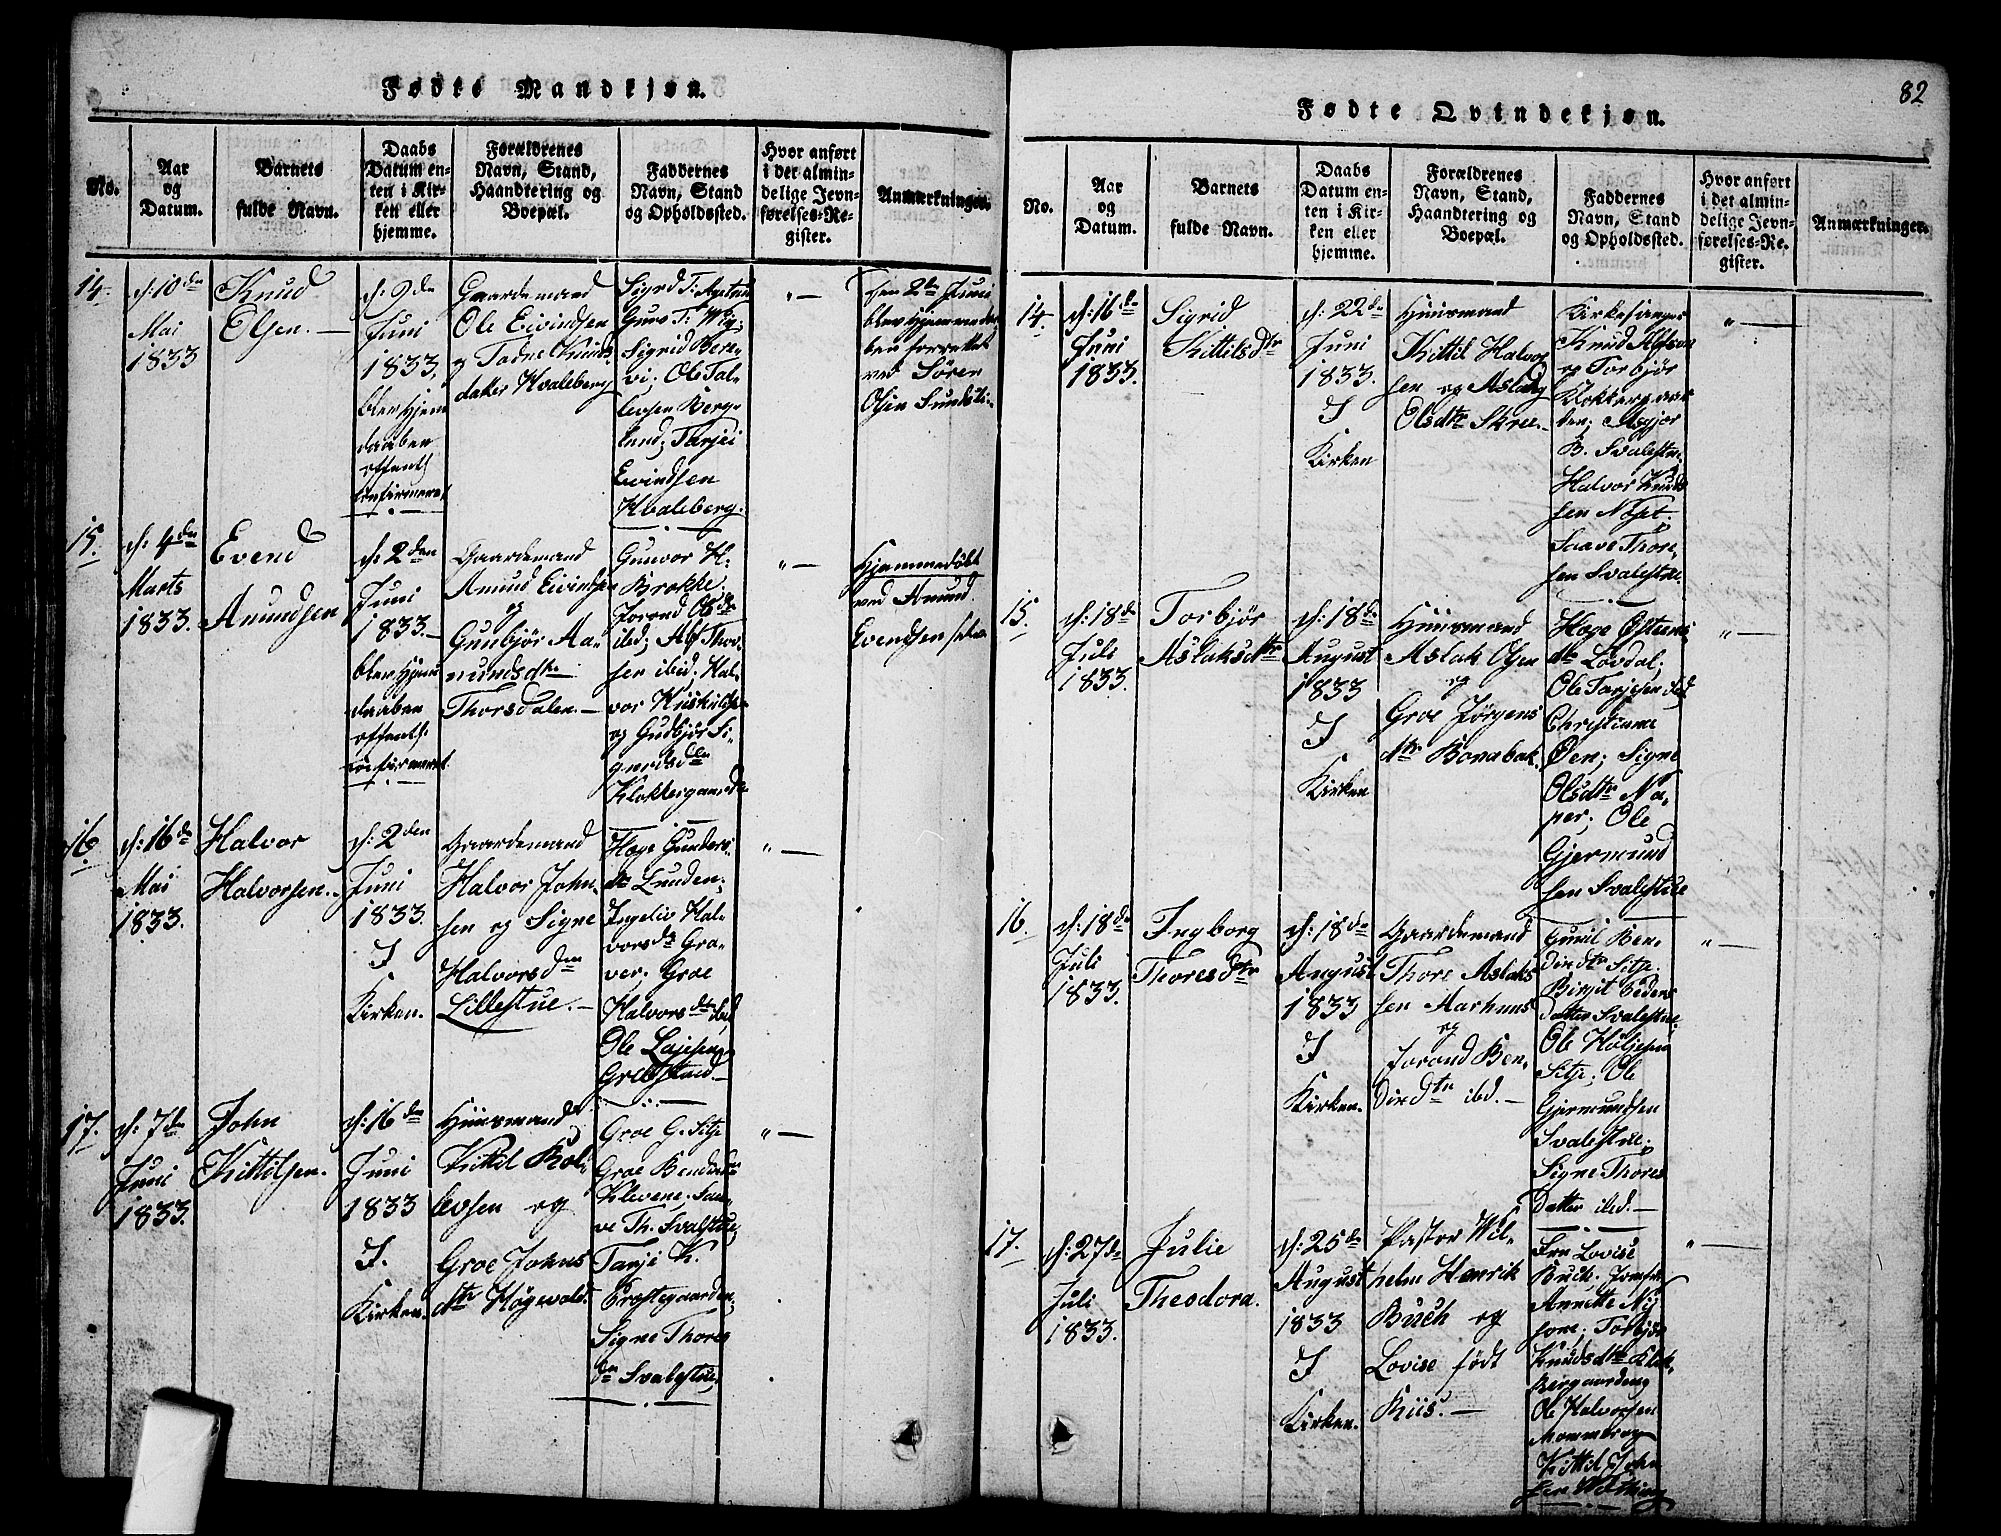 Fødte Mandkjøn.
No.
Aar
og
Datum.
Barnets
fulde Navn.
Daabs
Datum en-
ten i Kir-
ken eller
hjemme.
Forældrenes
Navn, Stand,
Haandtering og
Boepæl.
Faddernes
Navn, Stand
og Opholdssted.
Hvor anført
i det almin-
delige Jevn-
førelses-Re-
gister.
Anmærkninger.
14.
d: 10de
Mai
1833
Knud
Olsen. —
d: 9de
Juni
1833.
blev hjem
daaben
offentl
confirmeret
Gaardemand
Ole Eivindsen
og Tadne Knuds
datter Hvaleberg
Sigrid
Guro T:
Sigrid Bere-
vi; Ole Tal-
levsen Berg-
lund; Tarjei
Eevindsen
Hvaleberg.
" —
den 2de Juni
blev hjemmedaa
ben forrettet
ved Søren
Olsen
15.
d: 4de
Marts
1833.
Evend
Amundsen
d: 2den
Juni
1833. —
blev hjem
daaben
offentl:
confirmeret
Gaardemand
Amund Eivindsen
og
Gunbjør Aa-
mundsdtr
Thorsdalen. —
Gunvor H.
Brokke;
Jorand Olsdr
ibd; Alf Thor-
sen ibid; Hal-
vor
og Gudbjør Si-
gurdsdr
Klokkergaarde
" —
Hjemmedøbt
ved Amund
Evendsen
16.
d: 16de
Mai
1833.
Halvor
Halvorsen. -
d: 2den
Juni
1833.
I
Kirken.
Gaardemand
Halvor John-
sen og Signe
Halvorsden
Lillestue. —
Hoge Gunders-
dr Lunden;
Ingeliv Hal-
vorsdr Gra-
ver; Groe
Halvorsdtr ibid
Ole
" —
17.
d: 7de
Juni
1833.
John
Kittilsen.
d: 16de
Juni
1833
I.
Kirken.
Huusmand
Kittil Rol-
levsen og
Groe Johns
dtr
Groe G. Sitje
Groe
Klevene; Saa-
ve Th. Svalestue,
Tarje K.
Signe Thores
dr Svalestue,
" —
82
Fødte Qvindekjøn.
No.
Aar
og
Datum.
Barnets
fulde Navn.
Daabs
Datum en-
ten i Kir-
ken eller
hjemme.
Forældrenes
Navn, Stand,
Haandtering og
Boepæl.
Faddernes
Navn, Stand
og Opholdssted.
Hvor anført
i det almin-
delige Jevn-
førelses-Re-
gister.
Anmærkninger.
14.
d: 16de
Juni
1833.
Sigrid
Kittilsdtr
d: 22de
Juni
1833.
I
Kirken
Huusmand
Kittil Halvor
sen og Aslaug
Olsdtr Skree. —
Kirkesanger
Knud Alfsen
og Torbjør
Klokkergaar-
den; Asgjer
B. Svalestue.
Halvor Knud
sen
Saave Thore-
sen Svalestue.
" —
15.
d: 18de
Juli
1833.
Torbjør
Aslaksdtr
d: 18de
August
1833
I
Kirken
Huusmand
Aslak Olsen
og
Groe Jørgens
dtr
Hoge
dtr Løvdal;
Ole Tarjesen ibd
Christiane
Øen; Signe
Olsdtr Na-
per; Ole
Gjermund
sen Svalestue
" —
16.
d: 18de
Juli
1833.
Ingborg
Thoresdtr
d: 18de
August
1833
I
Kirken.
Gaardemand
Thore Aslaks
sen Aarhuus
og
Jorand Ben-
dixdtr ibd. —
Gunil Ben-
dixdtr Sitje;
Birgit
Datter Svalestue.
Ole Høljesen
Sitje; Ole
Gjermundsen
Svalestue;
Signe Thores
Datter ibd. —
" —
17.
d: 27de
Juli
1833.
Julie
Theodora.
d: 25de
August
1833
I
Kirken.
Pastor Wil-
helm Henrik
Buch og
Lovise født
Kiis. —
Fru Lovise
Buch; Jomfru
Annette
Torbjør
Knudsdtr Klok-
kergaarden;
Ole Halvorsen
og
Kittil John
sen
" —